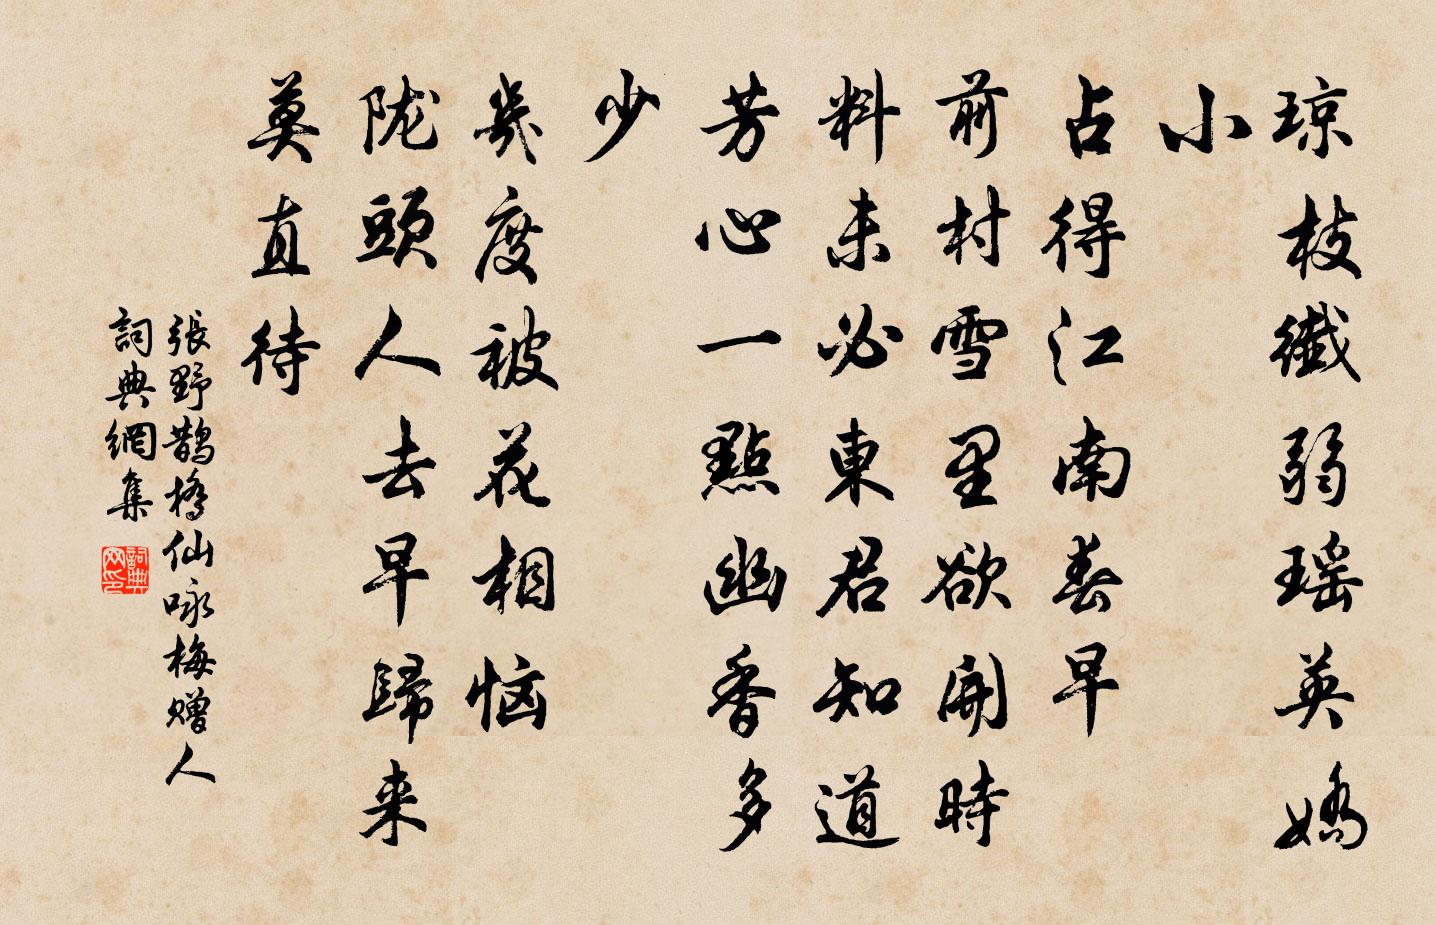 琼枝纖弱瑶英嬌
小
占得江南春早
前村雪里欲開時
料未必東君知道
芳心一點幽香多
少
幾度被花相恼
陇頭人去早歸来
莫直待
張野鵲橋仙咏梅赠人
詞典網集
詞典网印